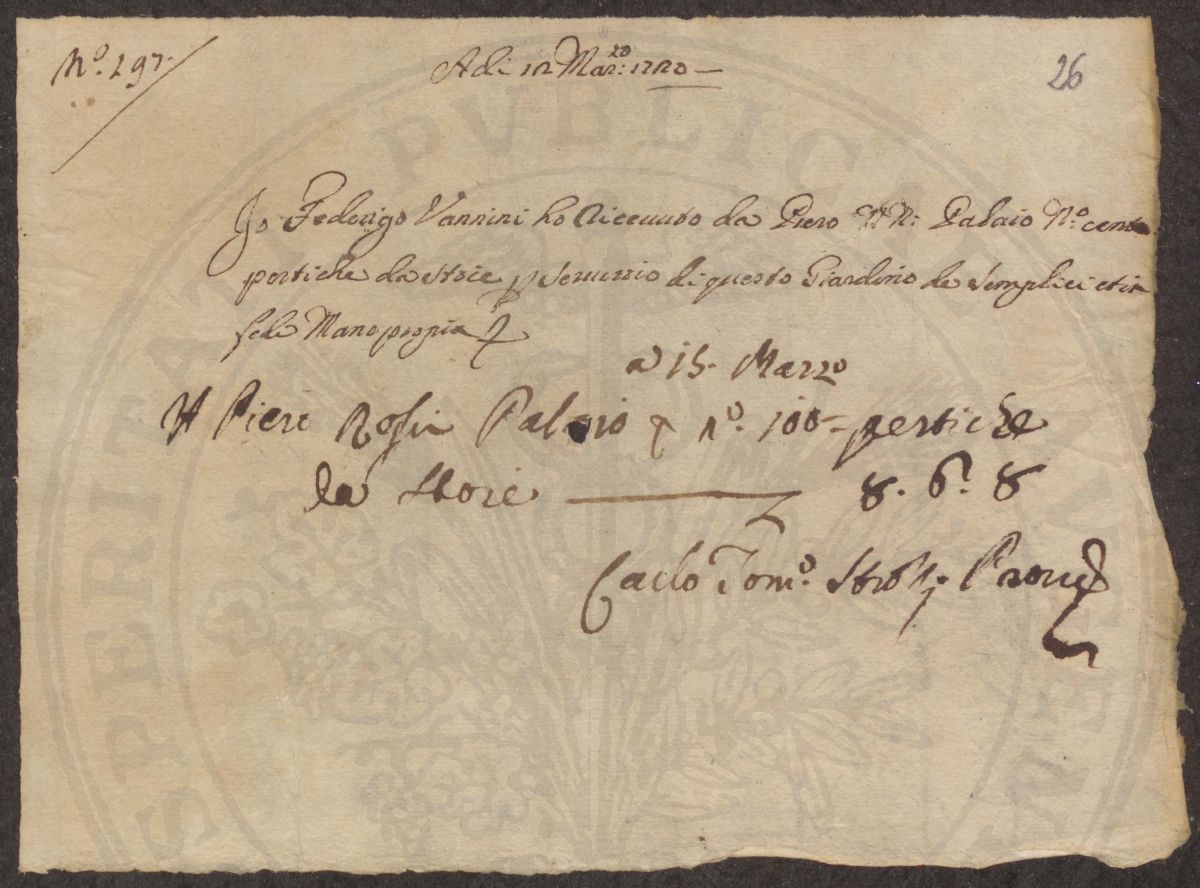 Nº. 197.
Adi 12 Mar.zo 1720
26
Io Federigo Vannini ho Riceuuto da Piero N.N: Palaio Nº. cento
pertiche da stoie p Seruizio di questo Giardino de Semplici et in
fede Mano propria
a 15. Marzo
A Piero Rosii Palaio p nº. 100 pertiche
da stoie 8. 6. 8
Carlo Tom.º Strozzi Prou.e
PROSPERITATI PVBLICAE